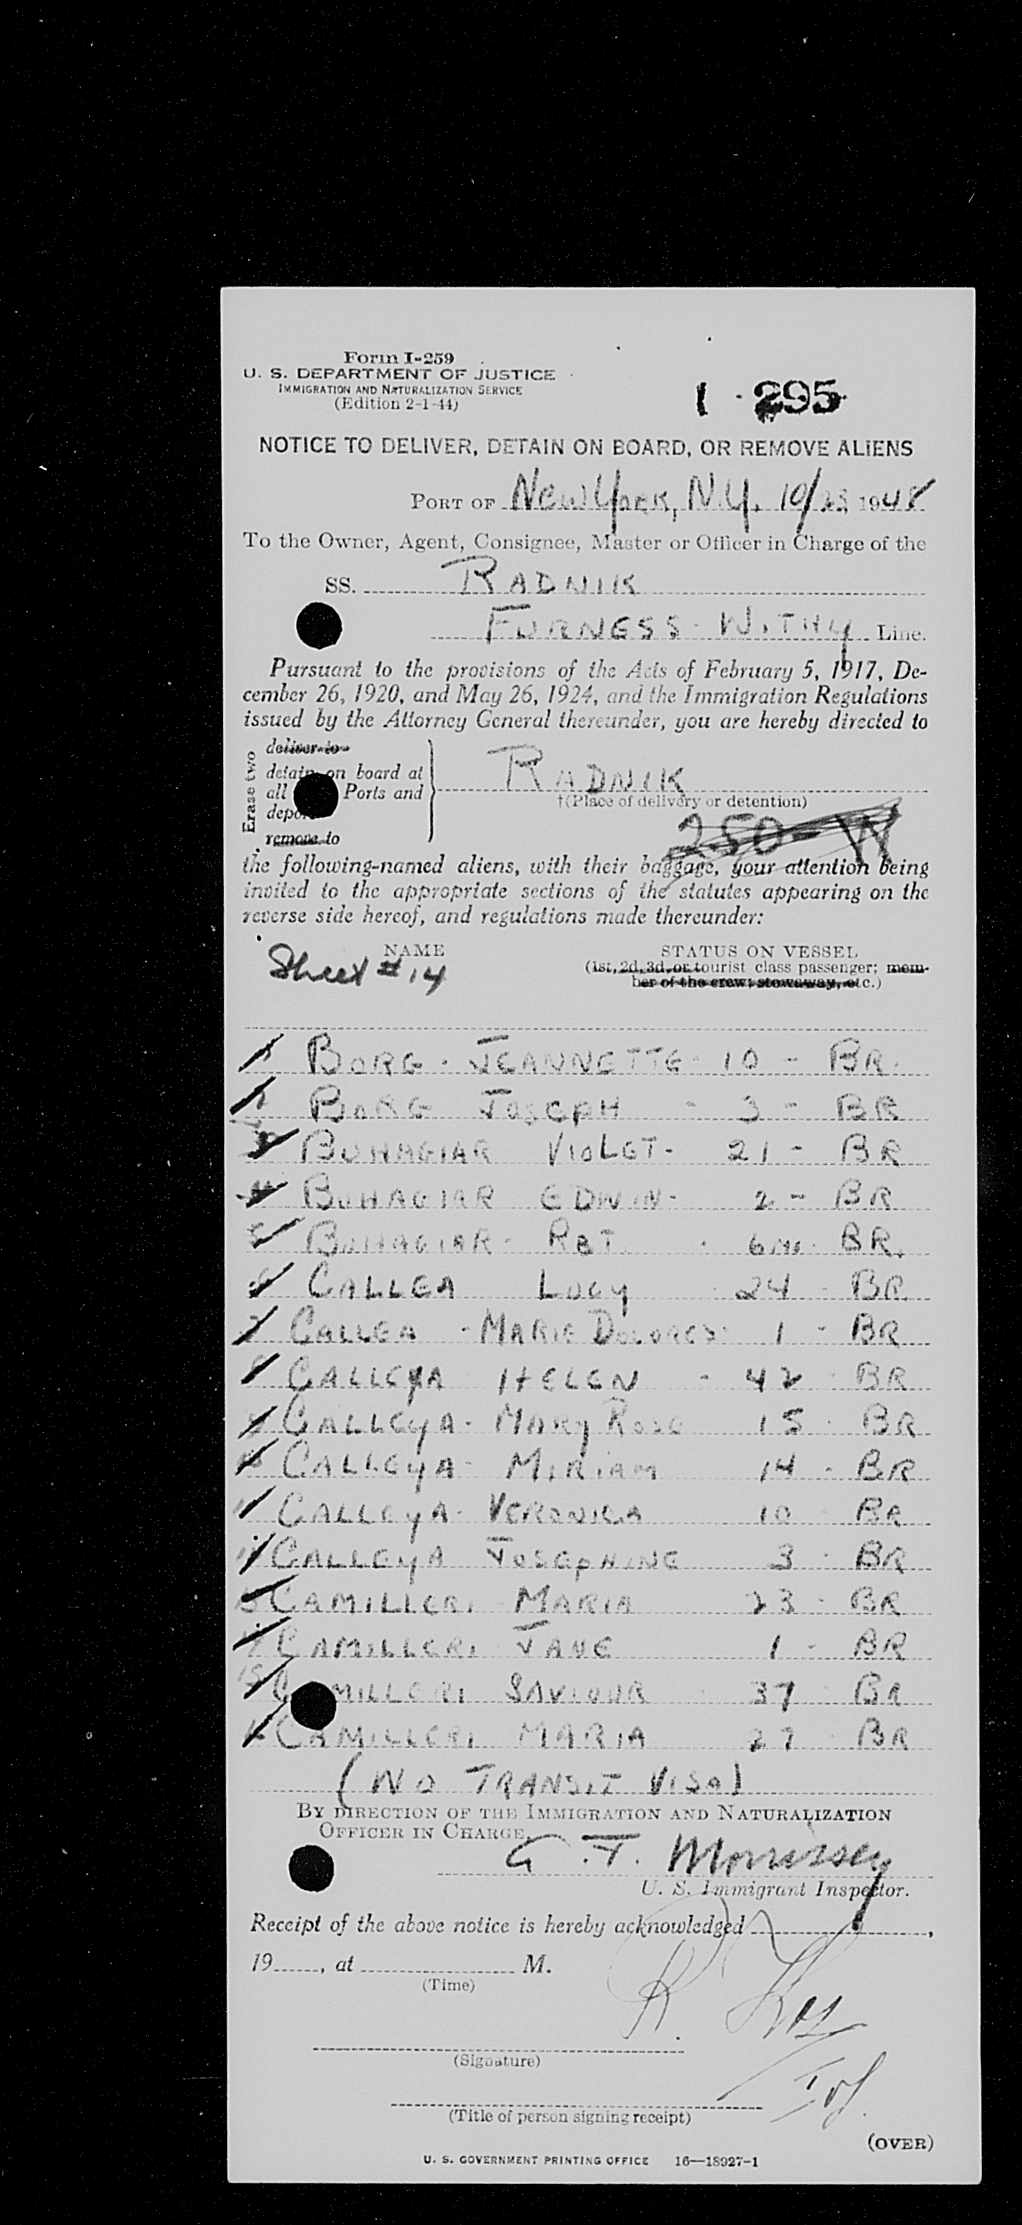 Form I-259
U. S. DEPARTMENT OF JUSTICE
IMMIGRATION AND NATURALIZATION SERVICE
(Edition 2-1-44)
1 - 295
NOTICE TO DELIVER, DETAIN ON BOARD, OR REMOVE ALIENS
PORT OF New York, N.Y. 10/28 1948
To the Owner, Agent, Consignee, Master or Officer in Charge of the
SS. RADNIK
FURNESS - WITHY Line.
Pursuant to the provisions of the Acts of February 5, 1917, De-
cember 26, 1920, and May 26, 1924, and the Immigration Regulations
issued by the Attorney General thereunder, you are hereby directed to
Erase two
deliver to
detain on board at
all Ports and
RADNIK
†(Place of delivery or detention)
remove to
250-W
the following-named aliens, with their baggage, your attention being
invited to the appropriate sections of the statutes appearing on the
reverse side hereof, and regulations made thereunder:
NAME STATUS ON VESSEL
Sheet #14 (1st, 2d, 3d, or tourist class passenger; mem-
ber of the crew; stowaway, etc.)
1 BORG - JEANNETTE - 10 - BR.
2 BORG JOSEPH - 3 - BR
3 BUHAGIAR VIOLET - 21 - BR
4 BUHAGIAR EDWIN - 2 - BR
5 BUHAGIAR - RBT. - 6 mo. BR.
6 CALLEA LUCY - 24 - BR
7 CALLEA - MARIE DOLORES - 1 - BR
8 CALLEYA HELEN - 42 - BR
9 CALLEYA - MARY ROSE 15 - BR
10 CALLEYA - MIRIAM 14 - BR
11 CALLEYA - VERONICA 10 BR
12 CALLEYA JOSEPHINE 3 - BR
13 CAMILLERI - MARIA 23 - BR
14 CAMILLERI JANE 1 - BR
15 CAMILLERI SAVIOUR 37 - BR
16 CAMILLERI MARIA 27 - BR
(NO TRANSIT VISA)
BY DIRECTION OF THE IMMIGRATION AND NATURALIZATION
OFFICER IN CHARGE.
G. T. Morrissey
U. S. Immigrant Inspector.
Receipt of the above notice is hereby acknowledged ,
19 , at M.
(Time)
(Signature)
(Title of person signing receipt)
(OVER)
U. S. GOVERNMENT PRINTING OFFICE 16—18927-1